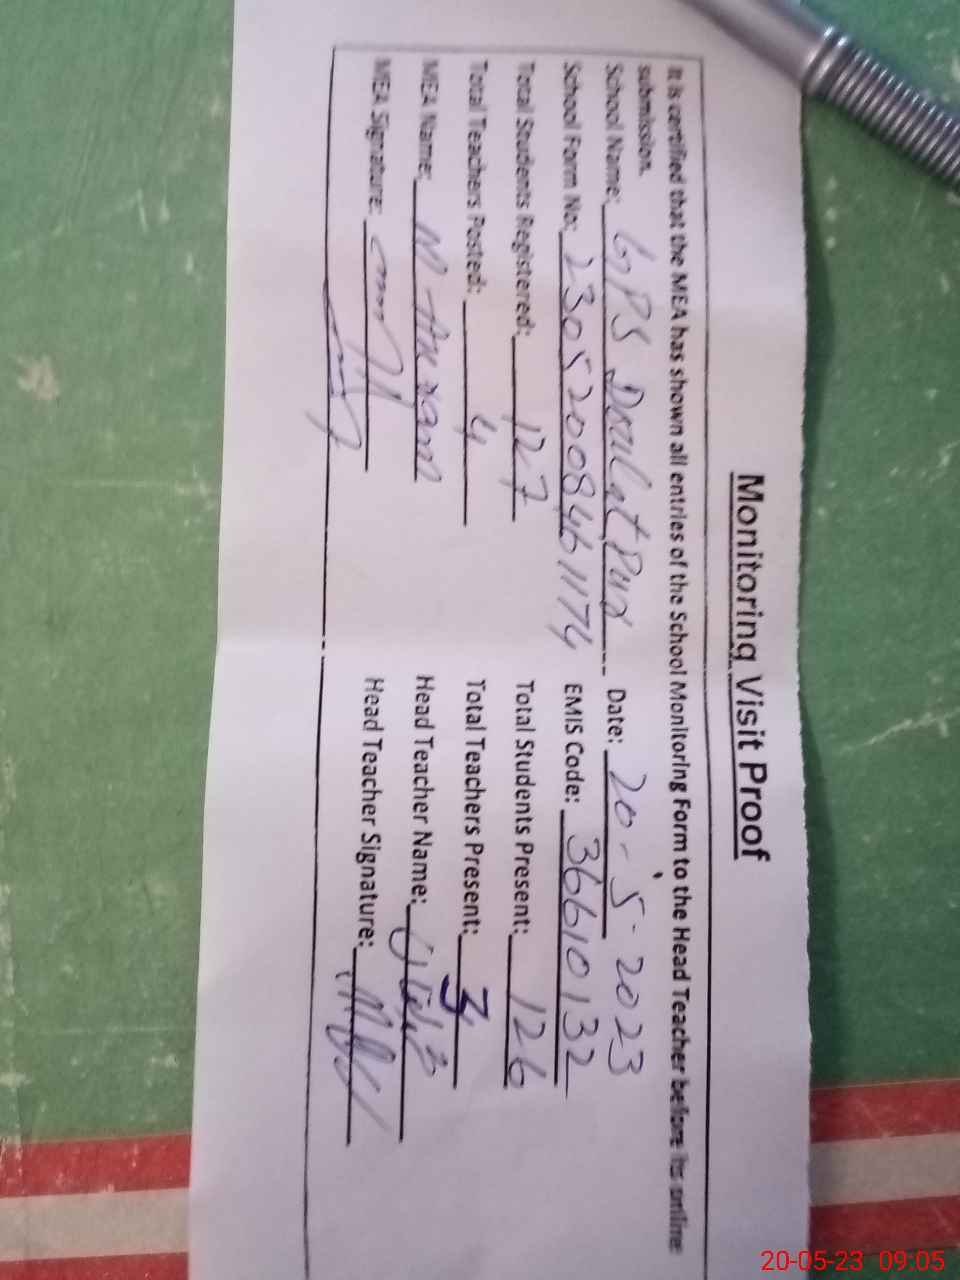 Monitoring Visit Proof
It is certified that the MEA has shown all entries of the School Monitoring Form to the Head Teacher before its online
submission.
School Name: GPS Daulat Pur Date: 20-5-2023
School Form No: 23052008461174 EMIS Code: 36610132
Total Students Registered: 127 Total Students Present: 126
Total Teachers Posted: 4 Total Teachers Present: 3
MEA Name: M Akram Head Teacher Name:
MEA Signature: Head Teacher Signature:
20-05-23 09:05